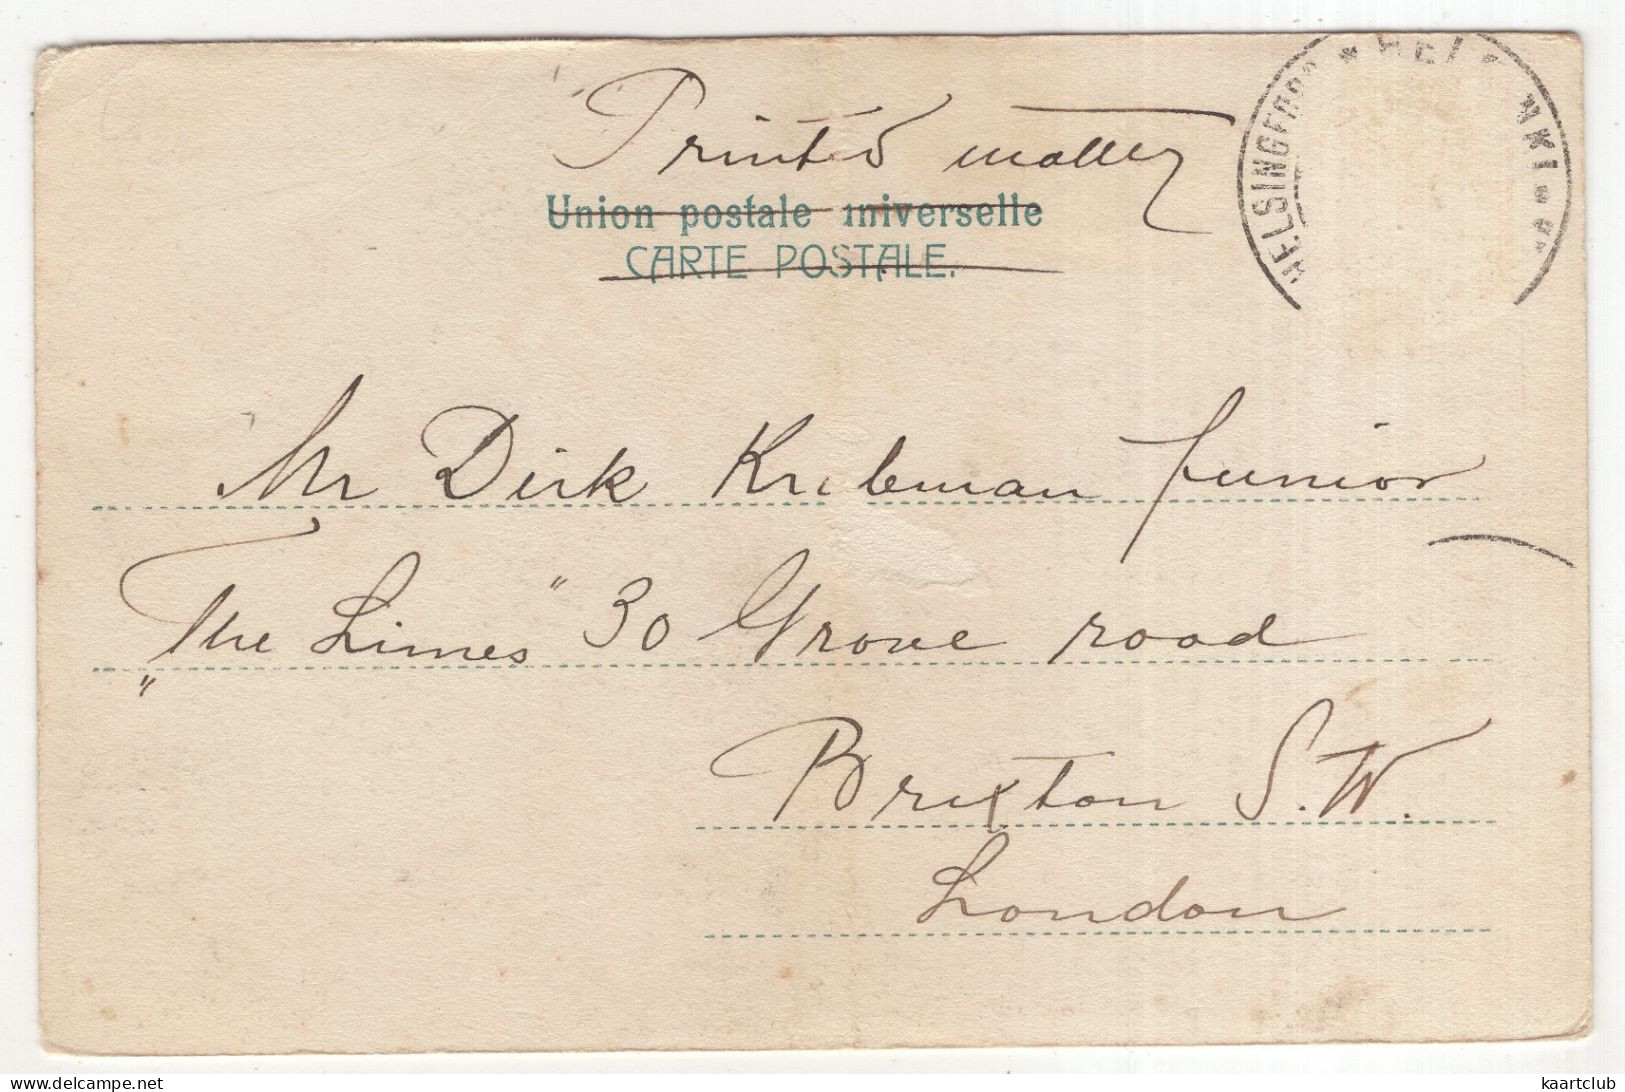 Printed matter
Union postale universelle
CARTE POSTALE.
HELSINGFORS * HELSINKI
Mr Dirk Junior
"The Limes" 30 Grove road
Brixton S.W.
London
kaartclub